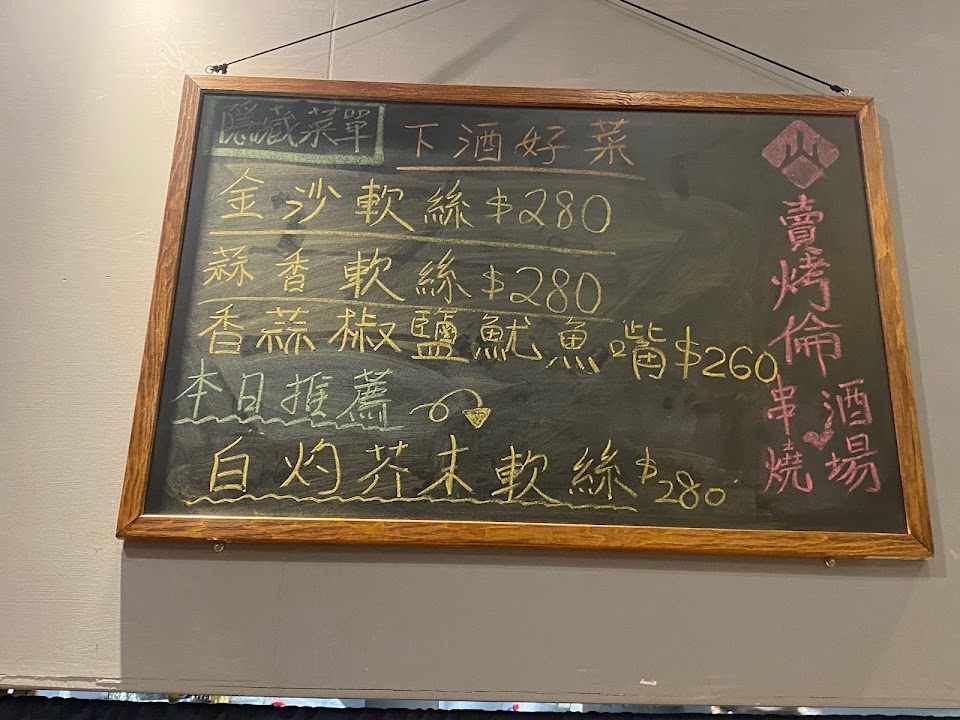 隱藏菜單 下酒好菜
金沙軟絲$280
蒜香軟絲$280
香蒜椒鹽魷魚嘴$260
本日推薦
白灼芥末軟絲$280
山
賣烤倫
串燒
酒場